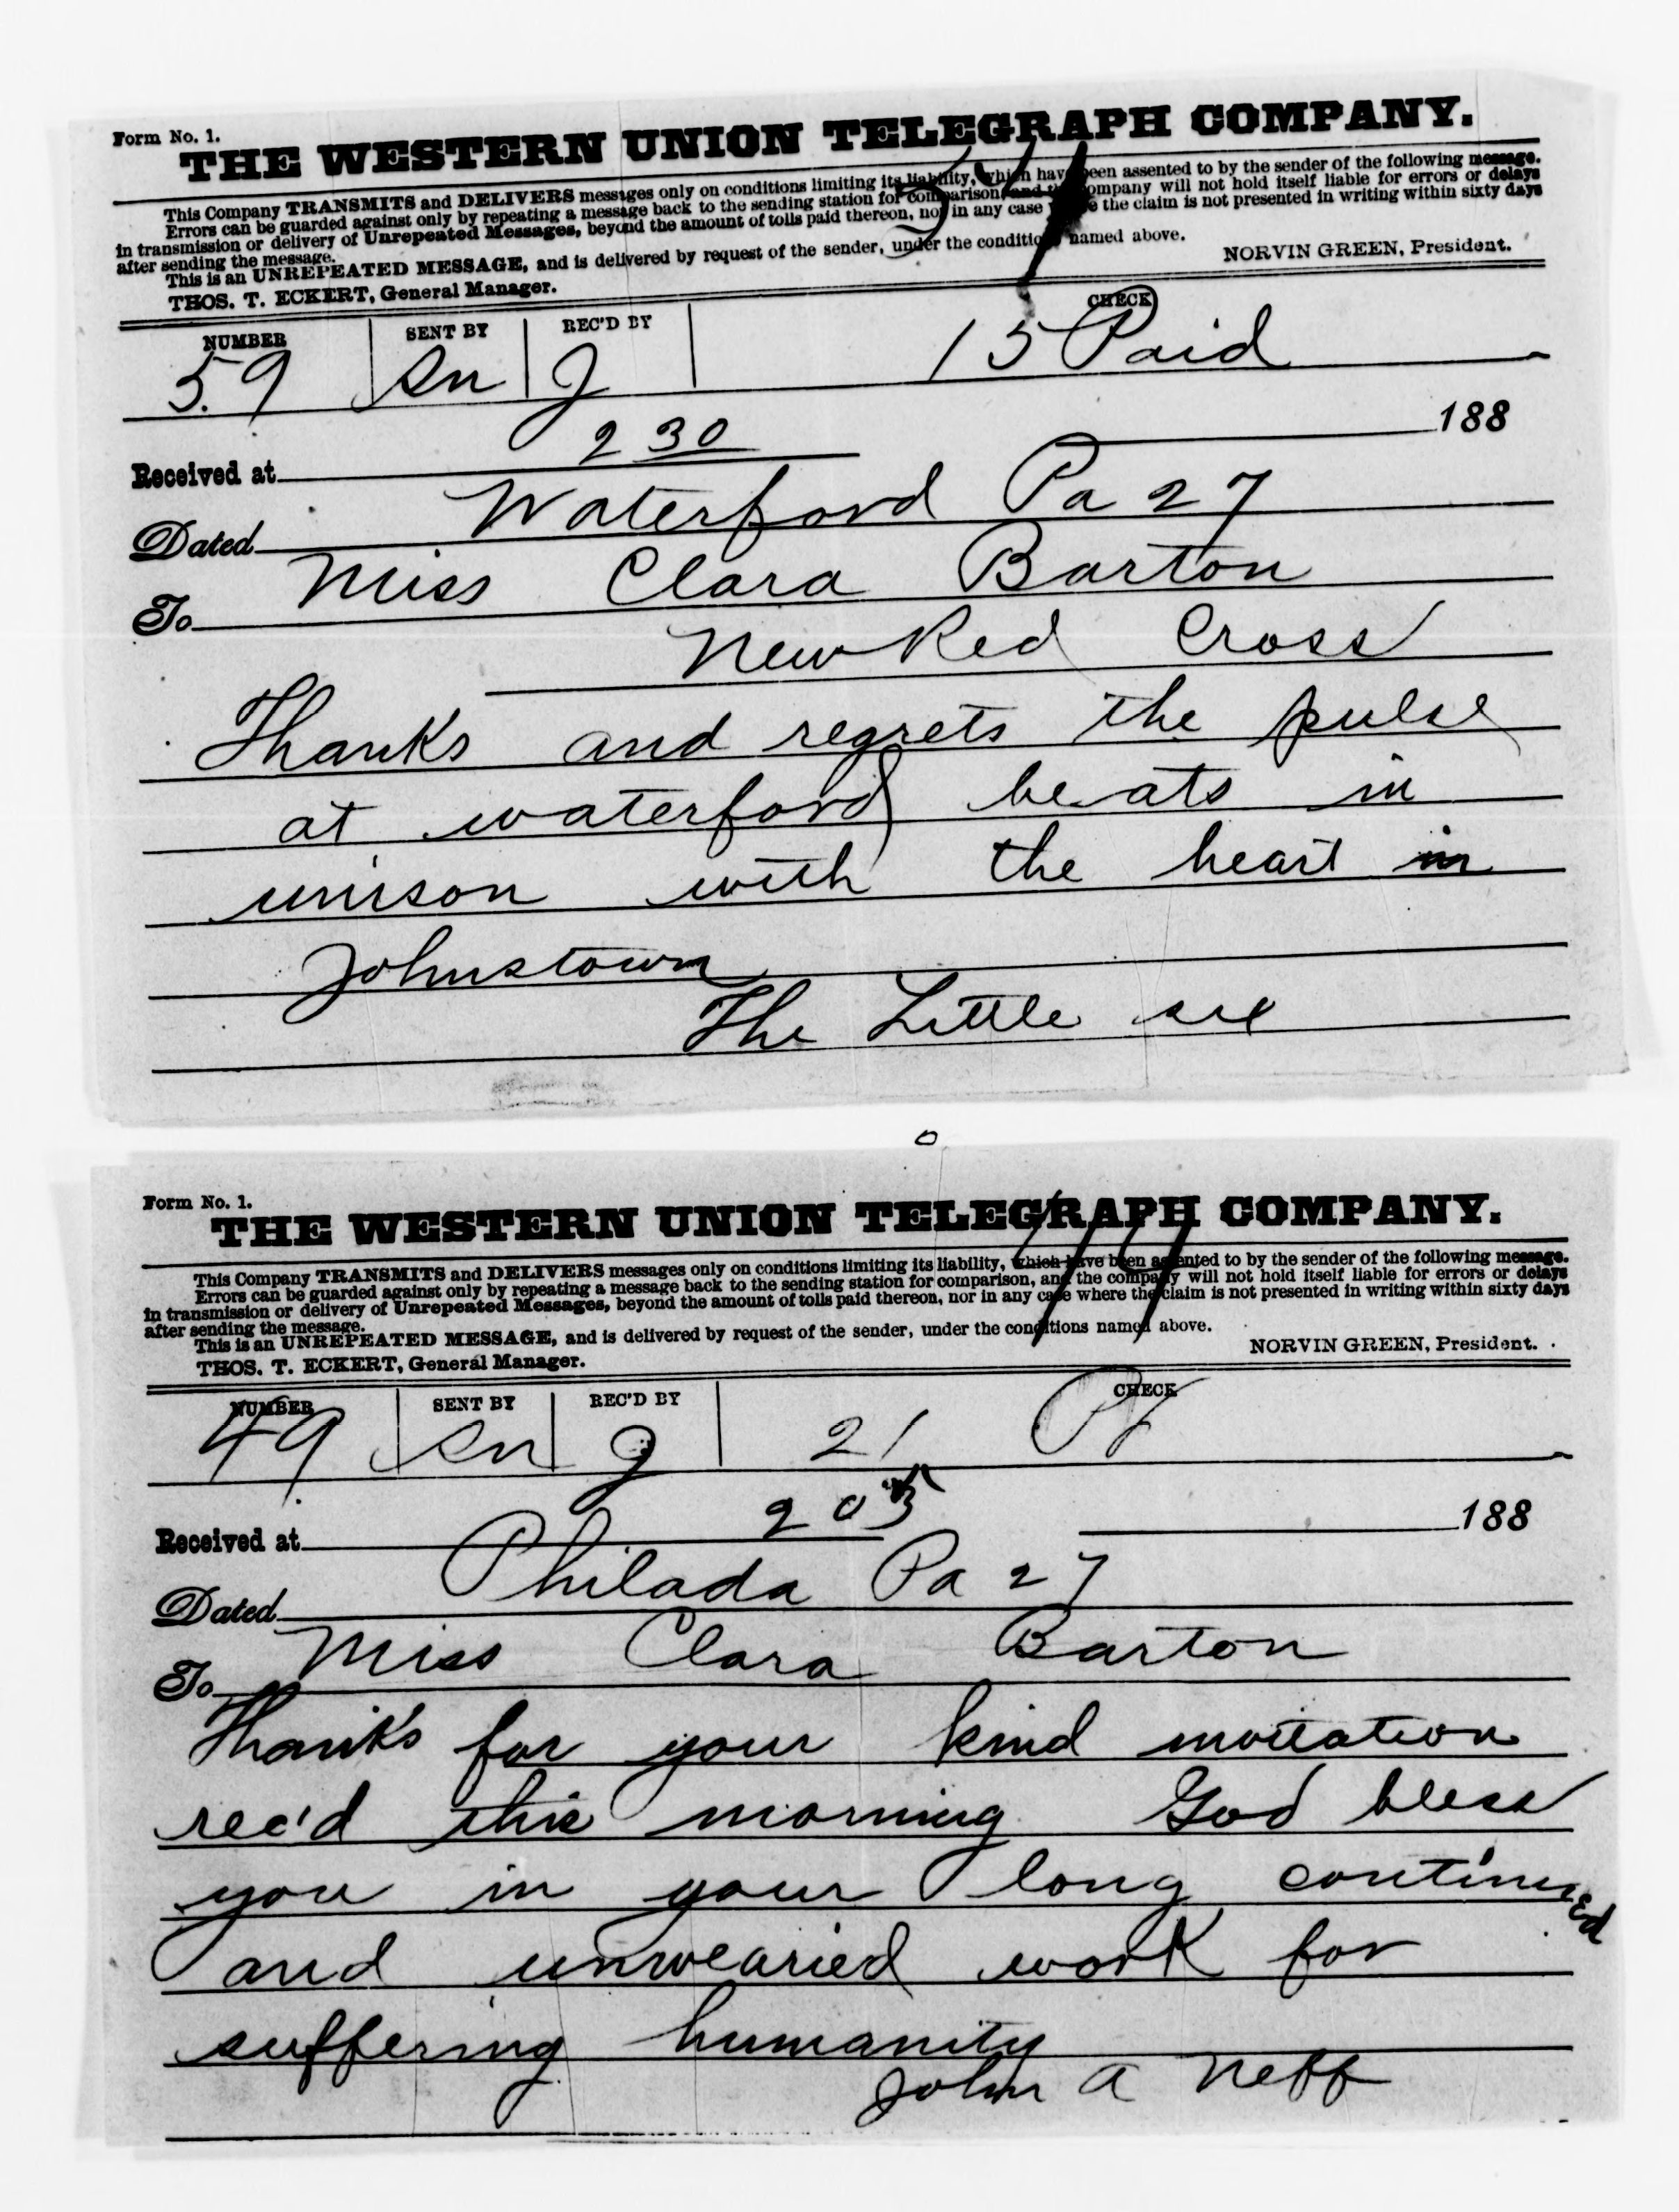 Form No. 1.
THE WESTERN UNION TELEGRAPH COMPANY.
This Company TRANSMITS and DELIVERS messages only on conditions limiting its liability, which have been assented to by the sender of the following message.
Errors can be guarded against only by repeating a message back to the sending station for comparison, and the company will not hold itself liable for errors or delays
in transmission or delivery of Unrepeated Messages, beyond the amount of tolls paid thereon, nor in any case where the claim is not presented in writing within sixty days
after sending the message.
This is an UNREPEATED MESSAGE, and is delivered by request of the sender, under the conditions named above.
THOS. T. ECKERT, General Manager. NORVIN GREEN, President.
NUMBER SENT BY REC'D BY CHECK
59 Sn J 15 Paid
Received at 2 30 188
Dated Waterford Pa 27
To Miss Clara Barton
New Red Cross
Thanks and regrets the pulse
at waterford beats in
unison with the heart in
Johnstown
The Little six
Form No. 1.
THE WESTERN UNION TELEGRAPH COMPANY.
This Company TRANSMITS and DELIVERS messages only on conditions limiting its liability, which have been assented to by the sender of the following message.
Errors can be guarded against only by repeating a message back to the sending station for comparison, and the company will not hold itself liable for errors or delays
in transmission or delivery of Unrepeated Messages, beyond the amount of tolls paid thereon, nor in any case where the claim is not presented in writing within sixty days
after sending the message.
This is an UNREPEATED MESSAGE, and is delivered by request of the sender, under the conditions named above.
THOS. T. ECKERT, General Manager. NORVIN GREEN, President.
NUMBER SENT BY REC'D BY CHECK
49 Sn J 21 Pd
Received at 2 05 188
Dated Philada Pa 27
To Miss Clara Barton
Thanks for your kind invitation
rec'd this morning God bless
you in your long continued
and unwearied work for
suffering humanity
John A Neff